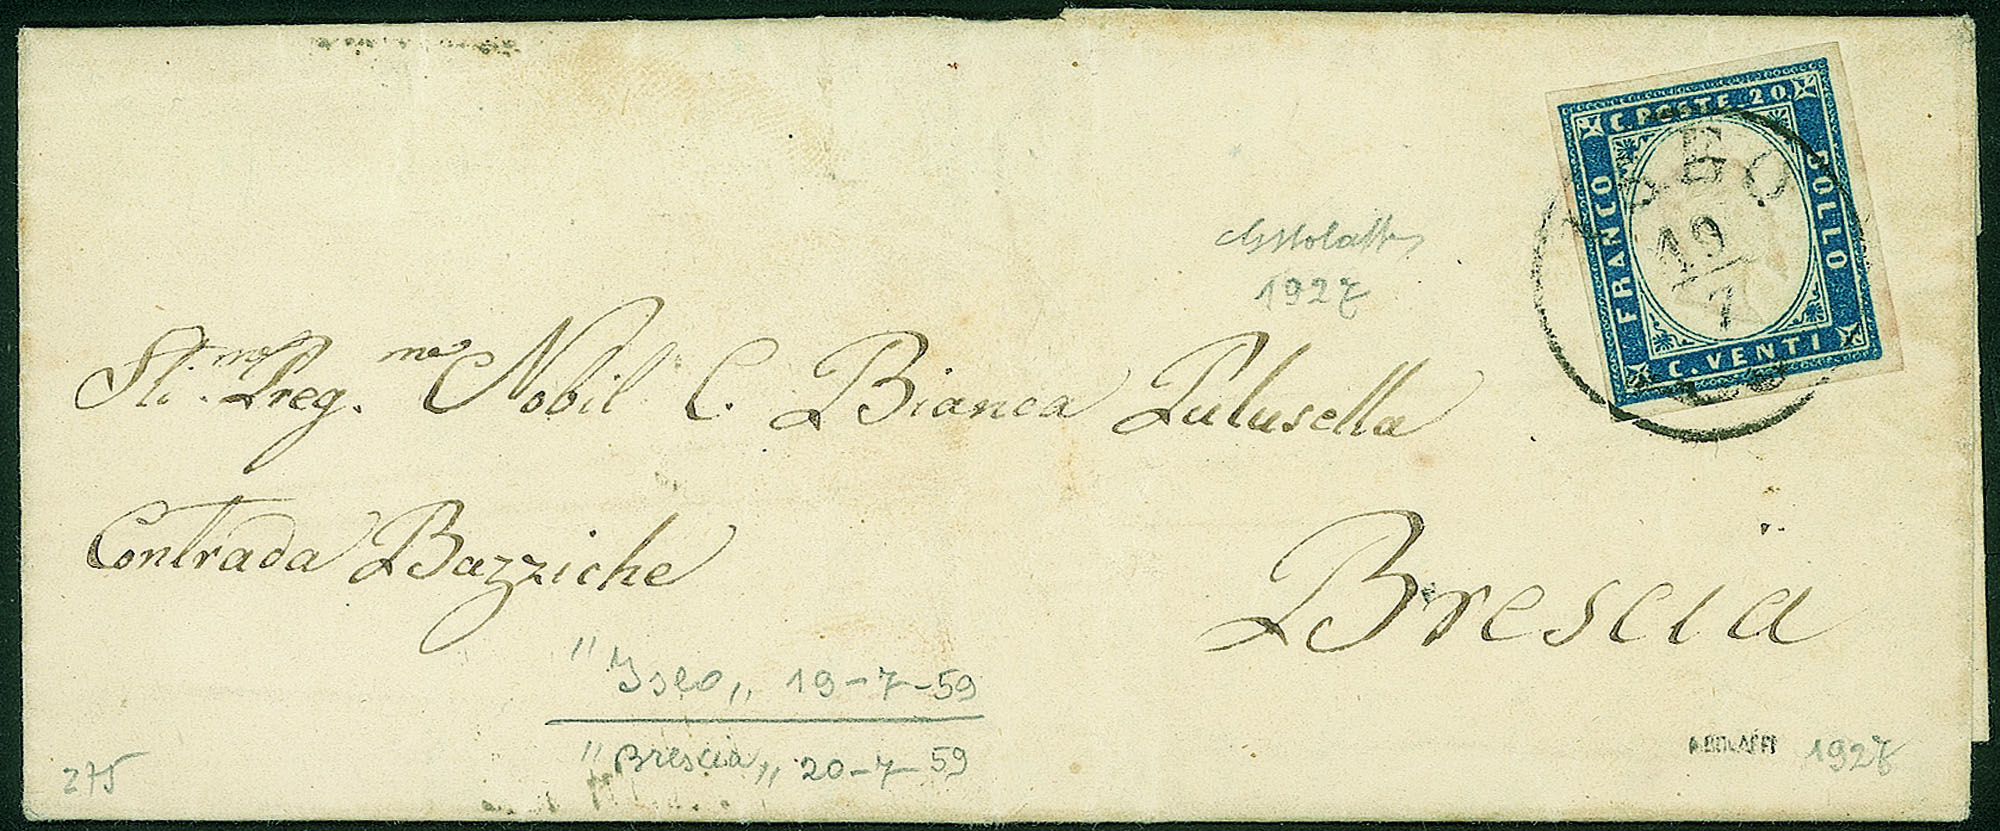 C. POSTE 20
FRANCO
BOLLO
C. VENTI
ISEO
19
7
1927
Sti.ma Preg.ma Nobil C. Bianca
Contrada Bazziche
Brescia
"Iseo„ 19-7-59
"Brescia„ 20-7-59
275
A. BOLAFFI 1927